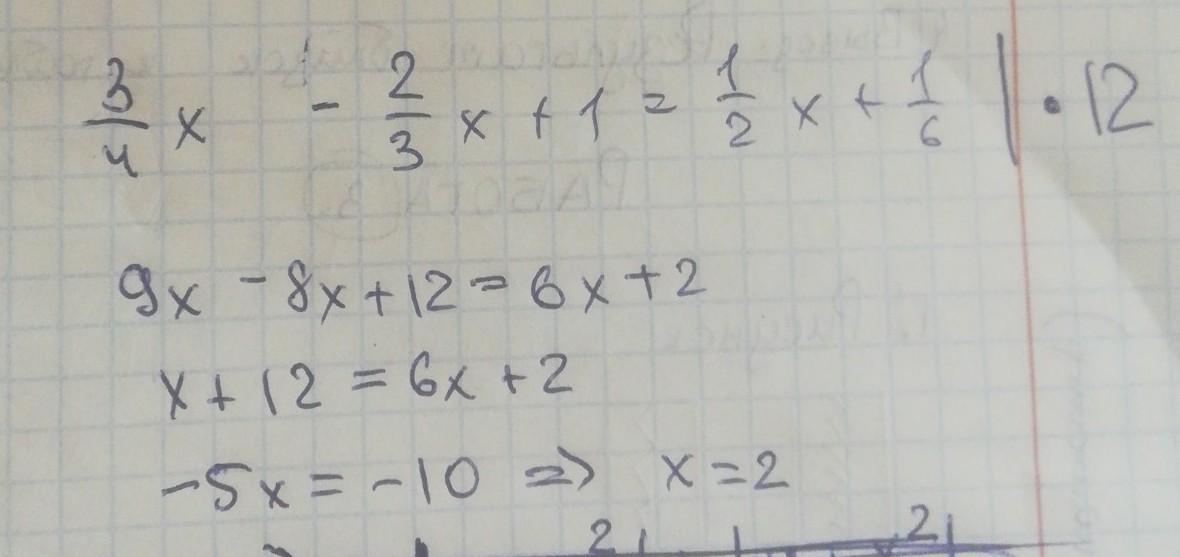 3/4 x - 2/3 x + 1 = 1/2 x + 1/6 | · 12
9x - 8x + 12 = 6x + 2
x + 12 = 6x + 2
-5x = -10 => x = 2